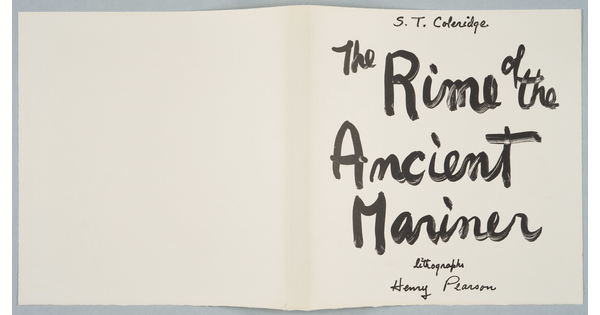 S. T. Coleridge
The Rime of the
Ancient
Mariner
lithographs
Henry Pearson